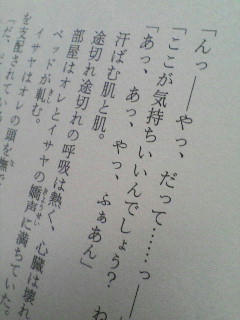 「んっ――やっ、だって……っ――
「ここが気持ちいいんでしょう? わ
「あっ、あっ、やっ、ふぁあん」
汗ばむ肌と肌。
途切れ途切れの呼吸は熱く、心臓は壊れ
部屋はオレとイサヤの嬌声に満ちていた。
ベッドが軋む。
イサヤはオレの頭を撫で
を支配されている
「だ、